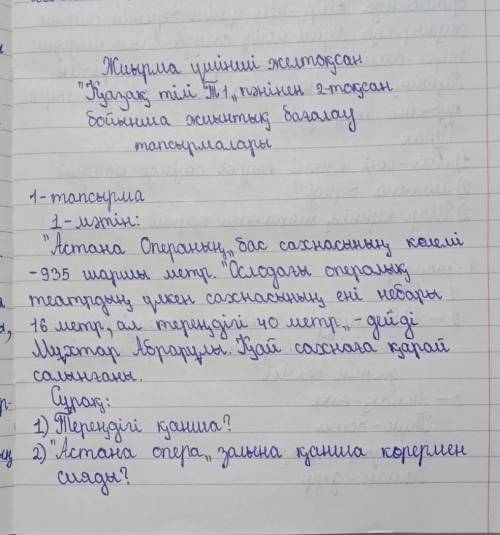 Жиырма үшінші желтоқсан
"Қазақ тілі Т1„ пәнінен 2-тоқсан
бойынша жиынтық бағалау
тапсырмалары
1-тапсырма
1-мәтін:
"Астана Операның„ бас сахнасының көлемі
-935 шаршы метр. "Ослодағы опералық
театрдың үлкен сахнасының ені небары
16 метр, ал тереңдігі 40 метр„ -дейді
Мұхтар Абрарұлы. Қай сахнаға қарай
салынғаны.
Сұрақ:
1) Тереңдігі қанша?
2) "Астана опера„ залына қанша көрермен
сияды?